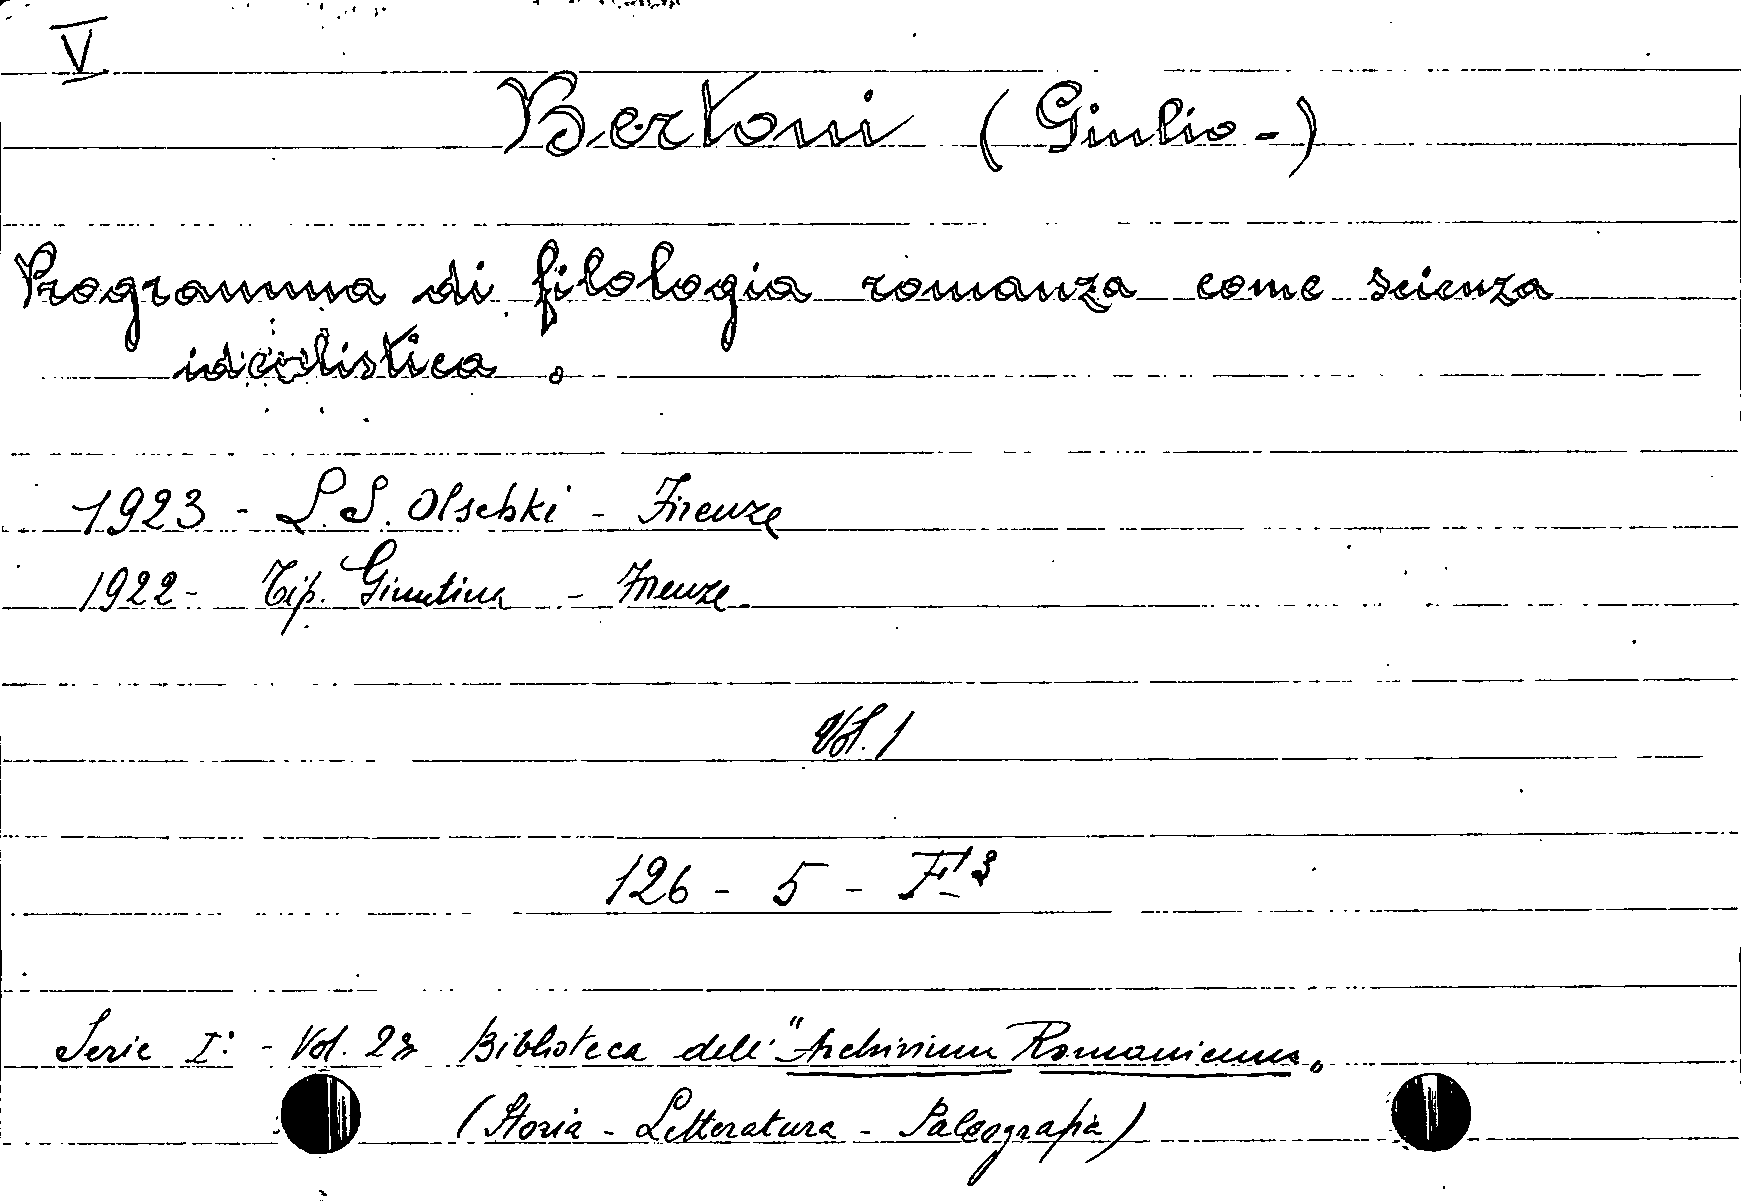 V
Bertoni (Giulio-)
Programma di filologia romanza come scienza
idealistica.
1923 - L.S. Olschki - Firenze
1922 - Tip. Giuntina - Firenze
Vol. 1
126 - 5 - F 3
Serie I: - Vol. 2 Biblioteca dell'"Archivium Romanicum.
(Storia - Letteratura - Paleografia)